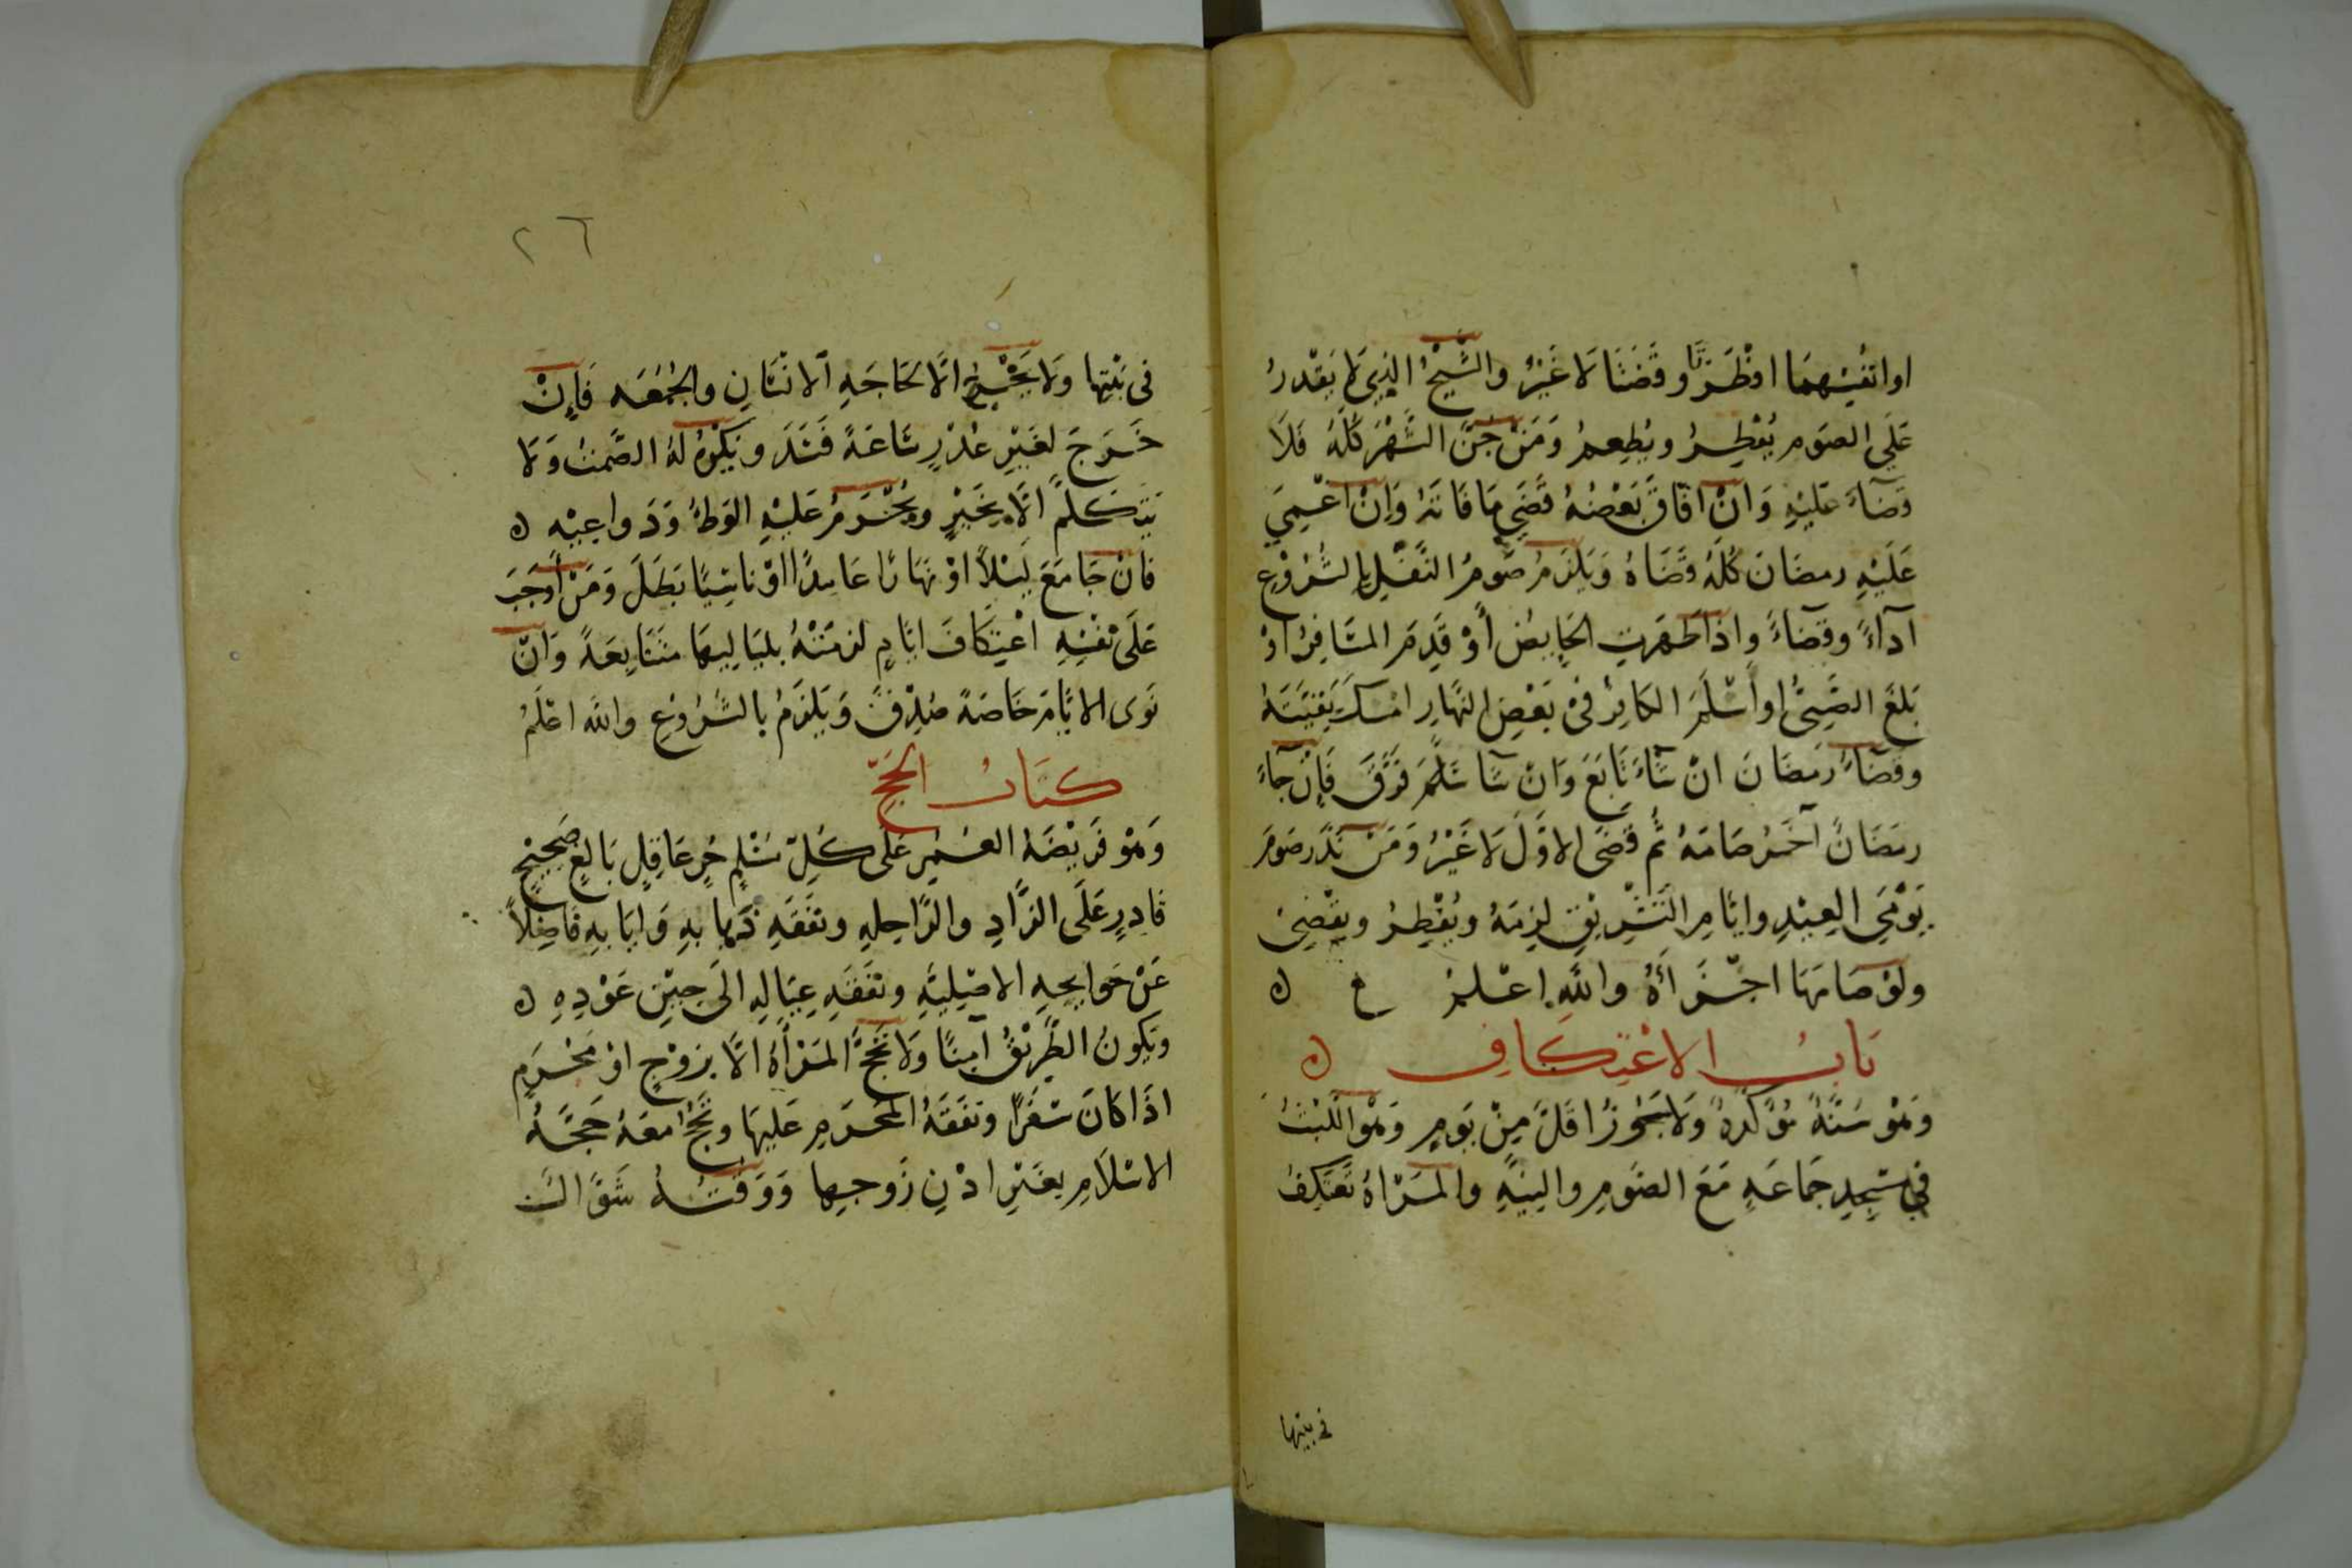 او انفسهما افطرتا وقضتا لا غير والشيخ الذي لا يقدر
على الصوم يفطر ويطعم ومن جن الشهر كله فلا
قضاء عليه وان افاق بعضه قضى ما فاته وان اغمي
عليه رمضان كله قضاه ويلزم صوم النفل بالشروع
آداء وقضاء واذا طهرت الحايض أو قدم المسافر او
بلغ الصبي او أسلم الكافر في بعض النهار امسك بقيته
وقضاء رمضان ان شاء تابع وان شا فرق فإن جاء
رمضان آخر صامه ثم قضى الاول لا غير ومن نذر صوم
يومي العيد وايام التشريق لزمه ويفطر ويقضي
ولو صامها اجزأه والله اعلم ع ه
باب الاعتكاف ه
وهو سنة مؤكدة ولا يجوز اقل من يوم وهو اللبث
في مسجد جماعة مع الصوم والنية والمرأة تعتكف
في بيتها
٢٦
في بيتها ولا يخرج الا لحاجة الانسان والجمعه فإن
خرج لغير عذر ساعة فسد ويكره له الصمت ولا
يتكلم الا بخير ويحرم عليه الوطئ ودواعيه ه
فان جامع ليلا او نهارا عامدا او ناسيا بطل ومن أوجب
على نفسه اعتكاف ايام لزمته بلياليها متتابعة وان
نوى الايام خاصة صدق ويلزم بالشروع والله اعلم
كتاب الحج
وهو فريضة العمر على كل مسلم حر عاقل بالغ صحيح
قادر على الزاد والراحله ونفقة ذهابه وايابه فاضلا
عن حوايجه الاصلية ونفقة عياله الى حين عوده ه
ويكون الطريق آمنا ولا تحج المرأة الا بزوج او محرم
اذا كان سفرا ونفقة المحرم عليها وتحج معه حجة
الاسلام بغير اذن زوجها ووقته شوال